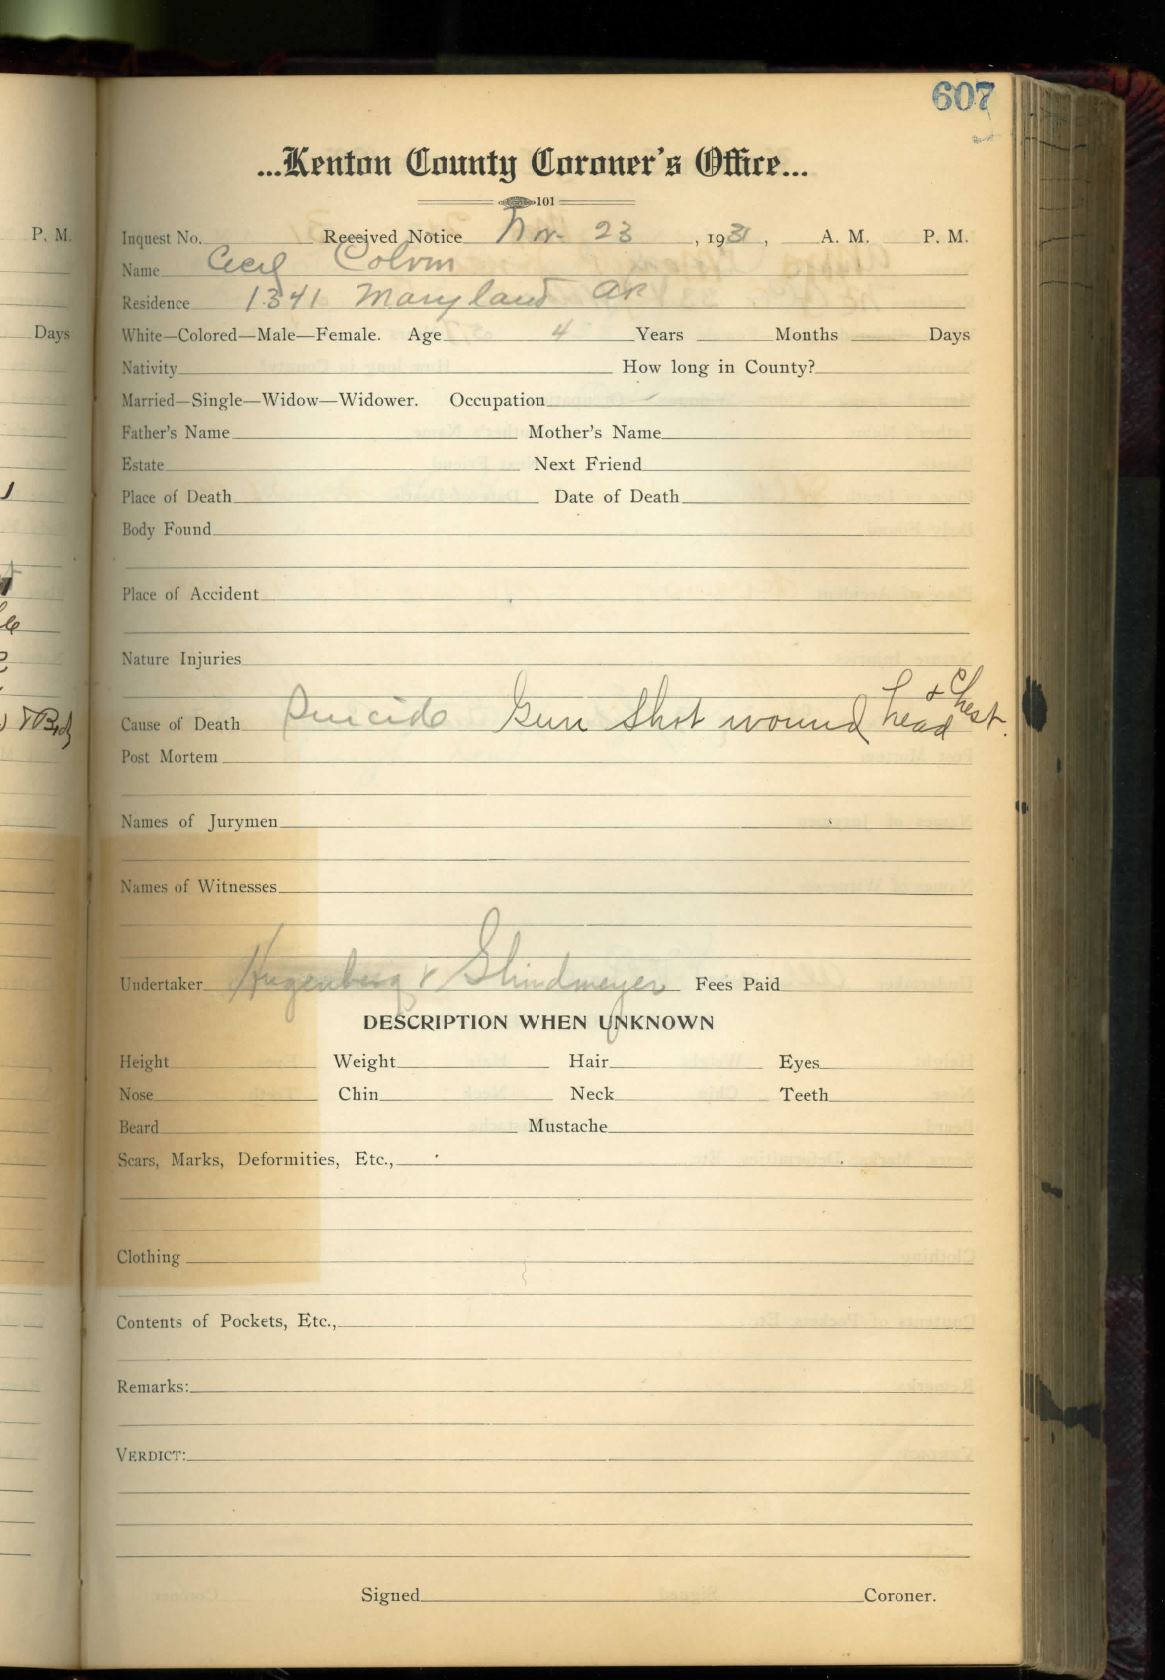 607
...Kenton County Coroner's Office...
101
P. M.
Inquest No. Received Notice Nov. 23, 1931, A. M. P. M.
Name Cecil Colvin
Residence 1341 Maryland av
Days
White—Colored—Male—Female. Age 4 Years Months Days
Nativity How long in County?
Married—Single—Widow—Widower. Occupation
Father's Name Mother's Name
Estate Next Friend
Place of Death Date of Death
Body Found
Place of Accident
Nature Injuries
Cause of Death Suicide Gun Shot wound head & Chest.
Post Mortem
Names of Jurymen
Names of Witnesses
Undertaker Hugenberg & Glindmeyer Fees Paid
DESCRIPTION WHEN UNKNOWN
Height Weight Hair Eyes
Nose Chin Neck Teeth
Beard Mustache
Scars, Marks, Deformities, Etc.,
Clothing
Contents of Pockets, Etc.,
Remarks:
VERDICT:
Signed Coroner.